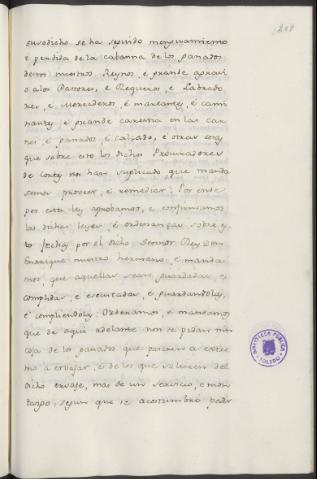 susodicho se ha seguido menguamiento
e perdida de la cabanna de los ganados
de mis nuestros Reynos, e grande agravi
o a los Pastores, e Requeros, e Labrado
res, e Mercaderos, e mareantes, e cami
nantes, e grande carestia en las car
nes, e ganados, e calzado, e otras cosas
que sobre esto los dichos Procuradores
de Cortes nos han suplicado que manda
semos proveer, e remediar: Por ende
por esta ley aprobamos, e confirmamos
las dichas leyes, e ordenanzas sobre es
to fechas por el dicho Sennor Rey Don
Enrrique nuestro hermano, e manda
mos, que aquellas sean guardadas, e
complidas, e executadas, e guardandolas,
e compliendolas: Ordenamos, e mandamos
que de aqui adelante non se pidan nin
coja de los ganados que pasaren a estre
mo a ervajar, e de los que salieren del
dicho ervaje, mas de un servicio, e mon
tazgo, segun que se acostumbró pedir
BIBLIOTECA PUBLICA
TOLEDO